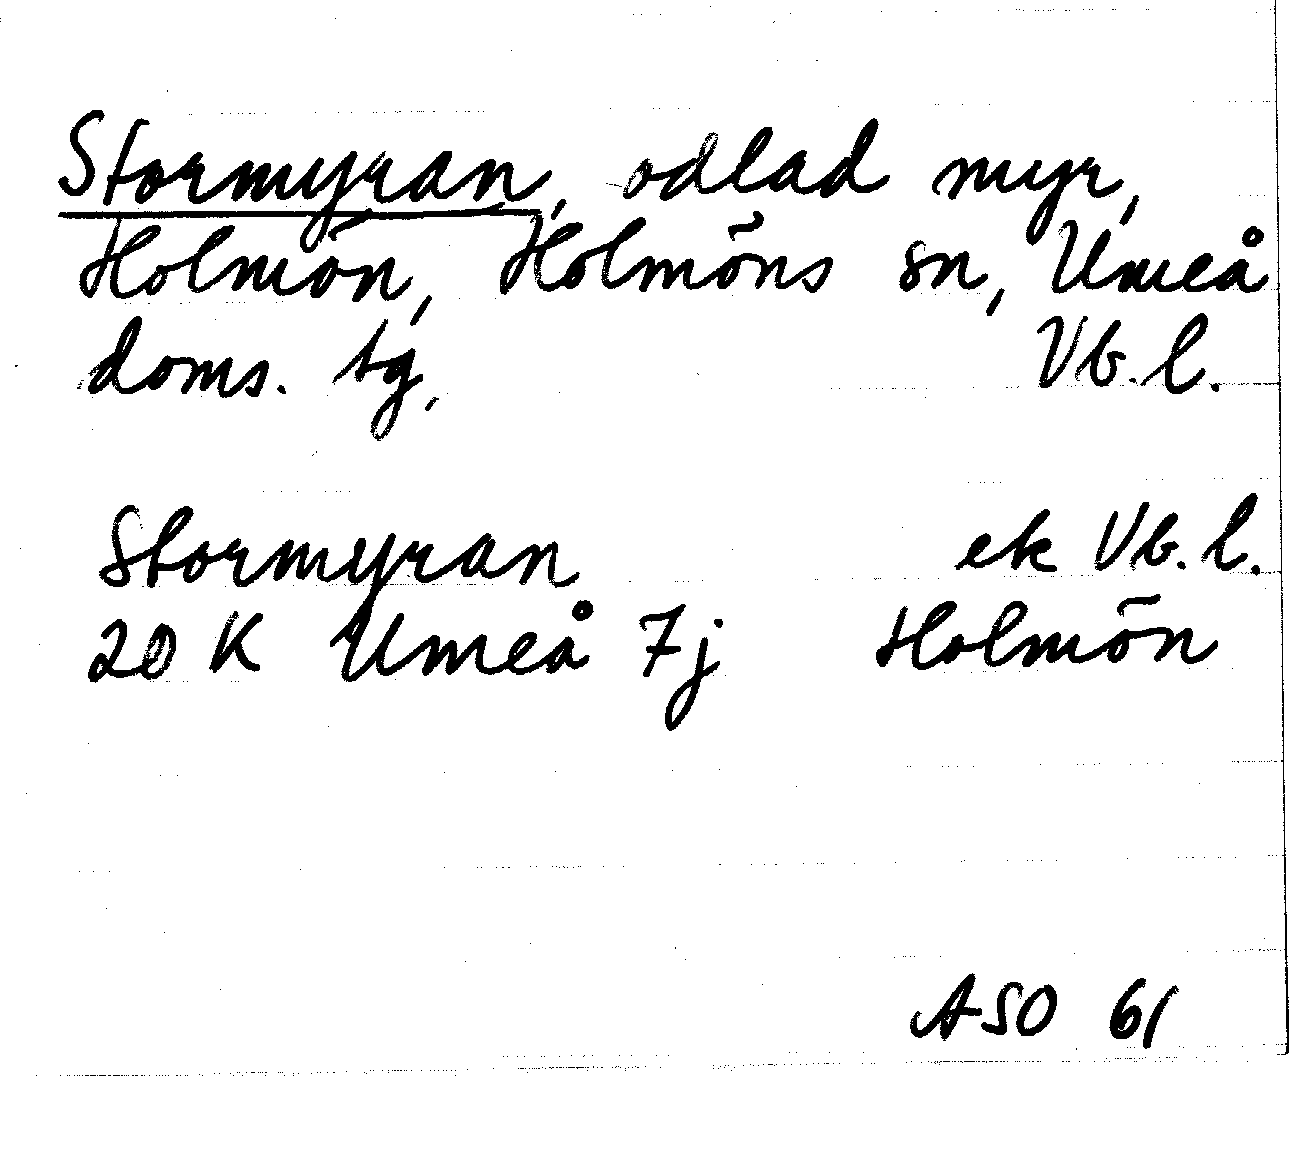 Stormyran, odlad myr,
Holmön, Holmöns sn, Umeå
doms. tg,    Vb. l.
Stormyran    ek Vb. l.
20 K Umeå 7j    Holmön
ASO 61